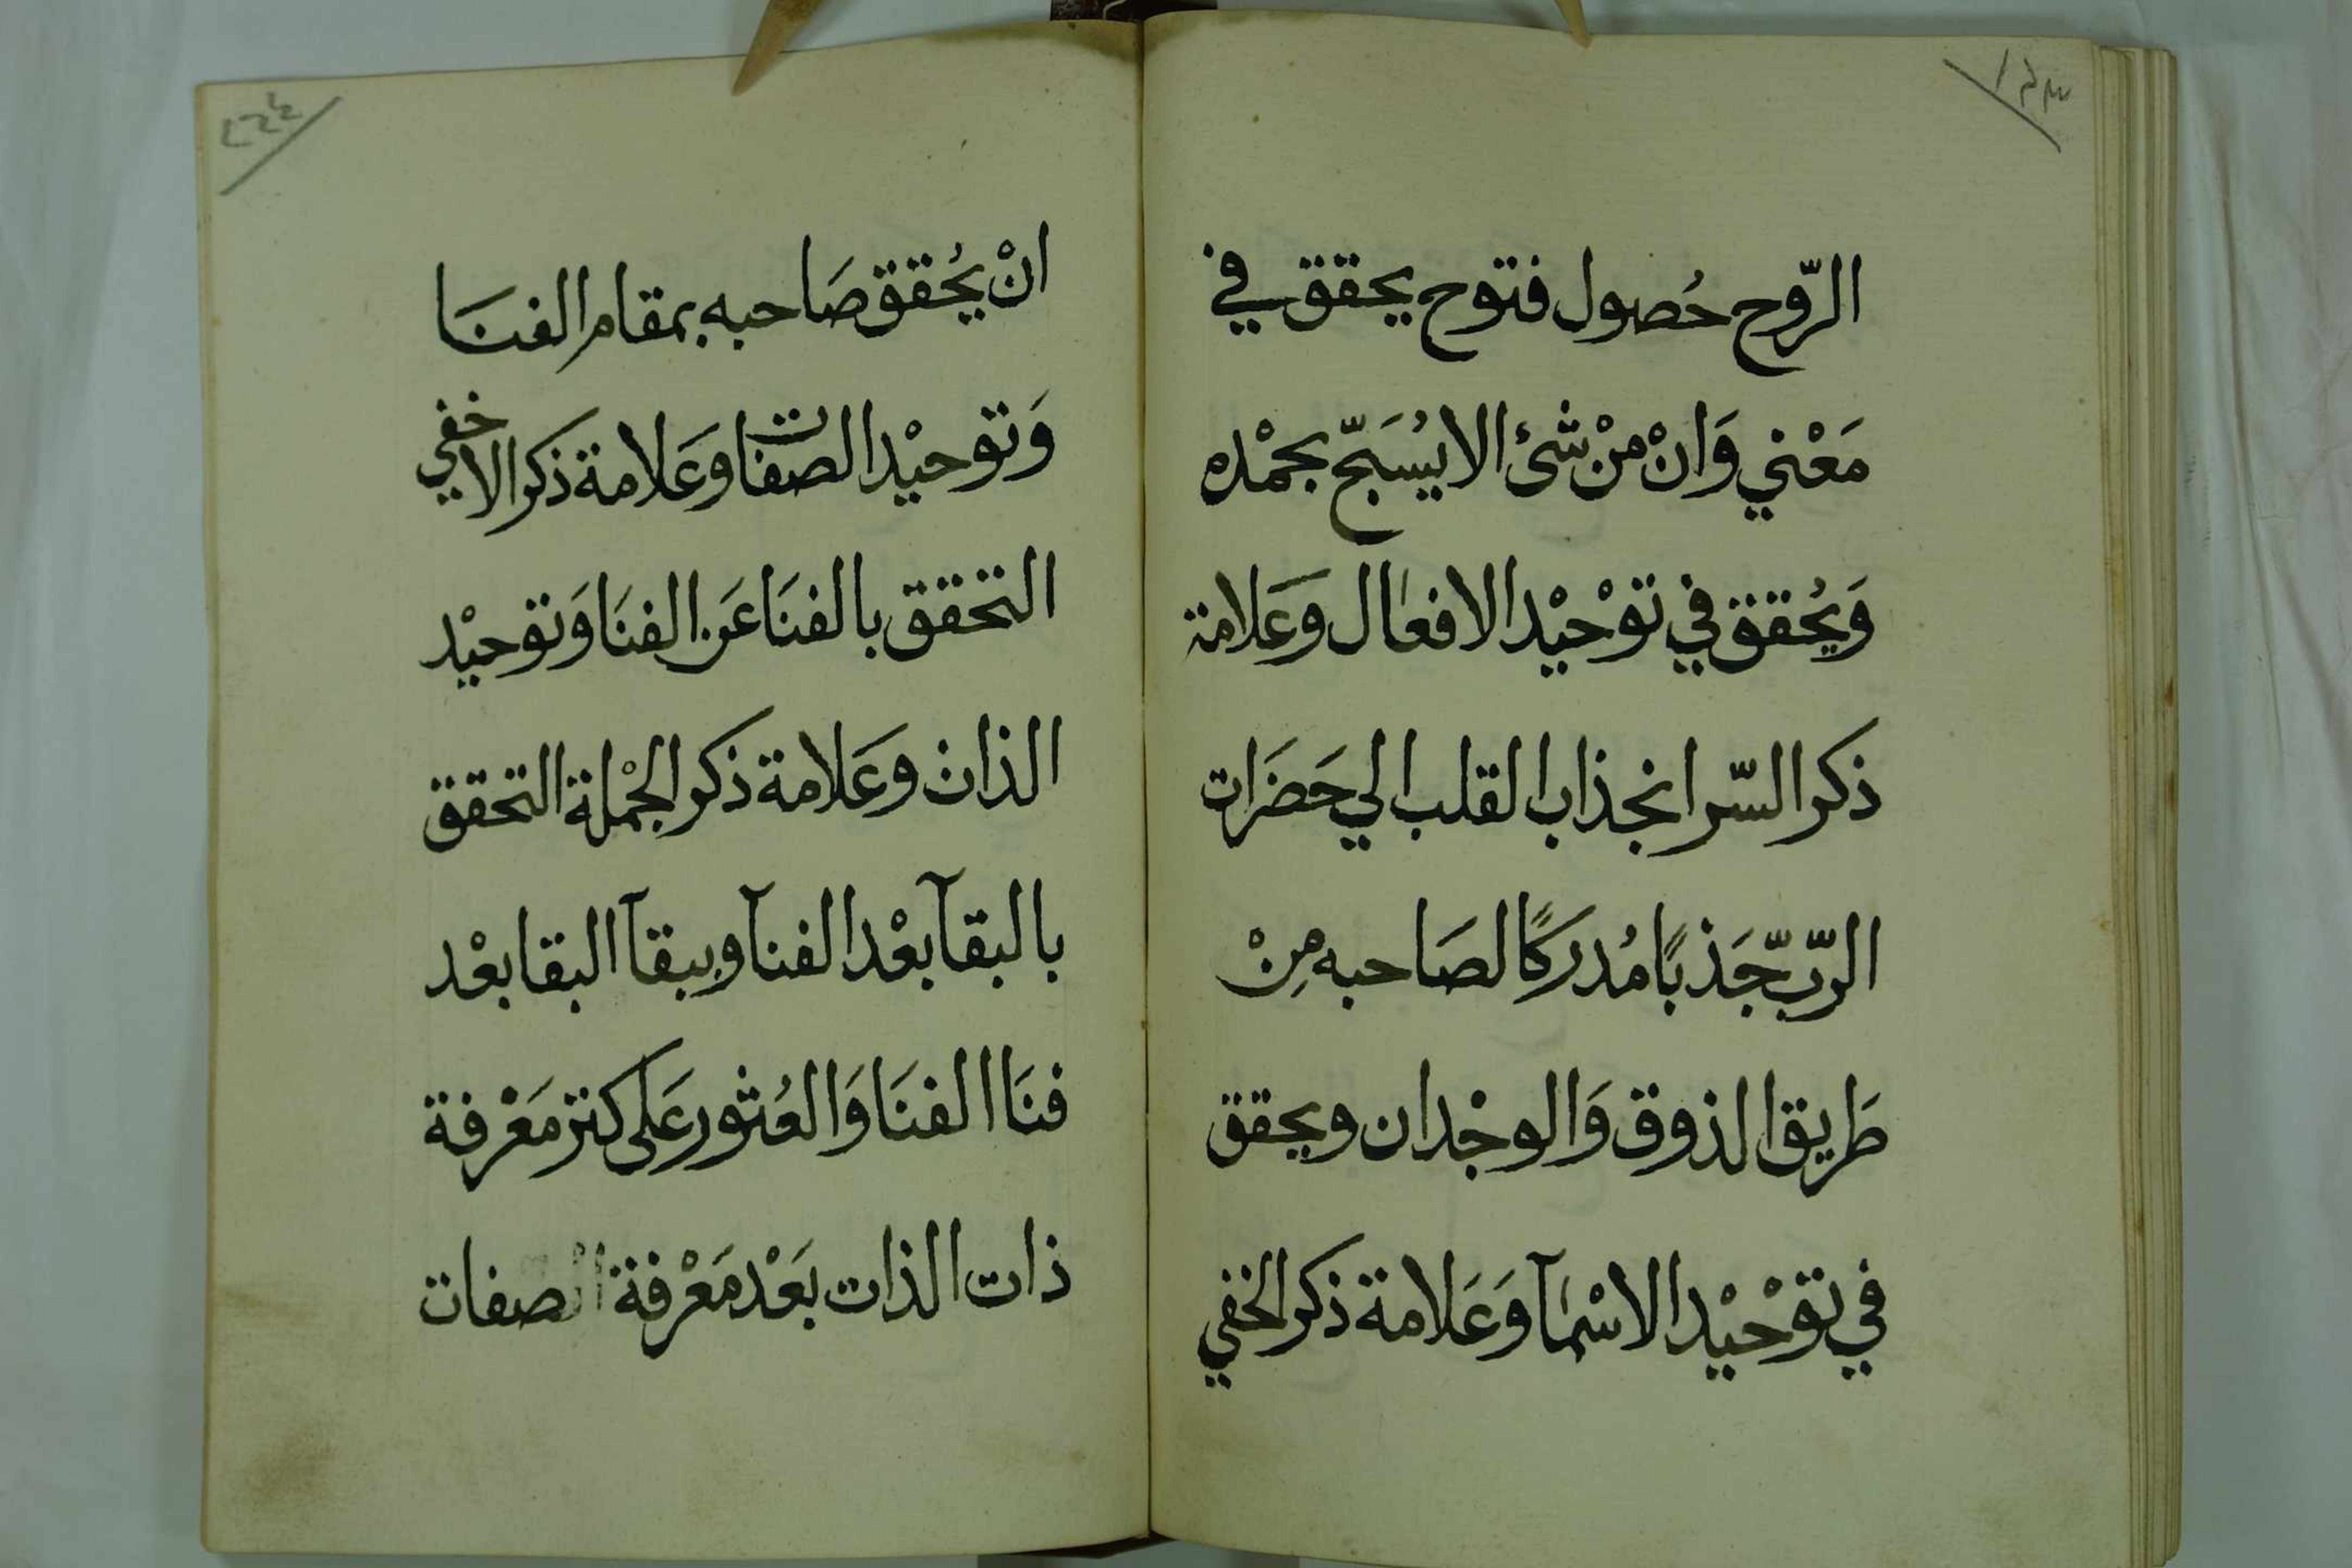 الرّوح حُصول فتوح يحقق في
مَعْني وَانْ مِنْ شئ الا يُسَبّح بحمْده
وَيُحُقق في توْحيْد الافعال وعَلامة
ذكر السّر انجذاب القلب الي حَضَرَات
الرّبّ جَذبًا مُدركًا لصَاحبه مِنْ
طَريق الذوق وَالوجْدان ويحقق
في توْحيْد الاسْمآ وَعَلامة ذكر الخفي
انْ يُحُقق صَاحبه بمقام الفنَا
وَتوحيْد الصفات وعَلامة ذكر الاخفي
التحقق بالفنَا عَن الفنَا وَتوحيْد
الذات وعَلامة ذكر الجمْلة التحقق
بالبقآ بعْد الفنآ وببقآ البقا بعْد
فنَا الفنَا وَالعُثور عَلى كنز مَعْرفة
ذات الذات بَعْد مَعْرفة الصفات